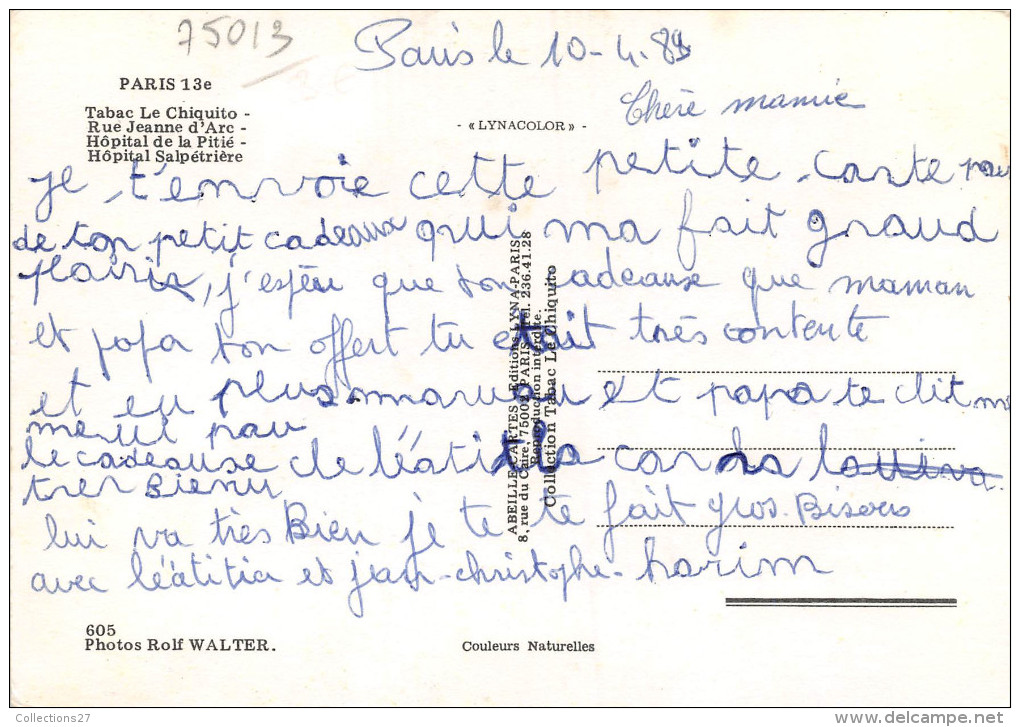 75013
Paris le 10-4.89
PARIS 13e
Tabac Le Chiquito -
Rue Jeanne d'Arc -
Hôpital de la Pitié -
Hôpital Salpétrière
- « LYNACOLOR » -
Chère mamie
je t'envoie cette petite carte pour
de ton petit cadeaux qui ma fait grand
plaisir, j'espere que ton cadeause que maman
et papa ton offert tu etait très contente
et en plus maman et papa te dit
le cadeause de léatitia car
tres Bien
lui va très Bien je te te fait gros. Bisous
avec léatitia et jean-christophe - karim
ABEILLE-CARTES Editions LYNA-PARIS
8, rue du Caire, 75002 PARIS Tél. 236.41.28
Reproduction interdite.
Collection Tabac Le Chiquito
605
Photos Rolf WALTER.
Couleurs Naturelles
Collections27
www.delcampe.net